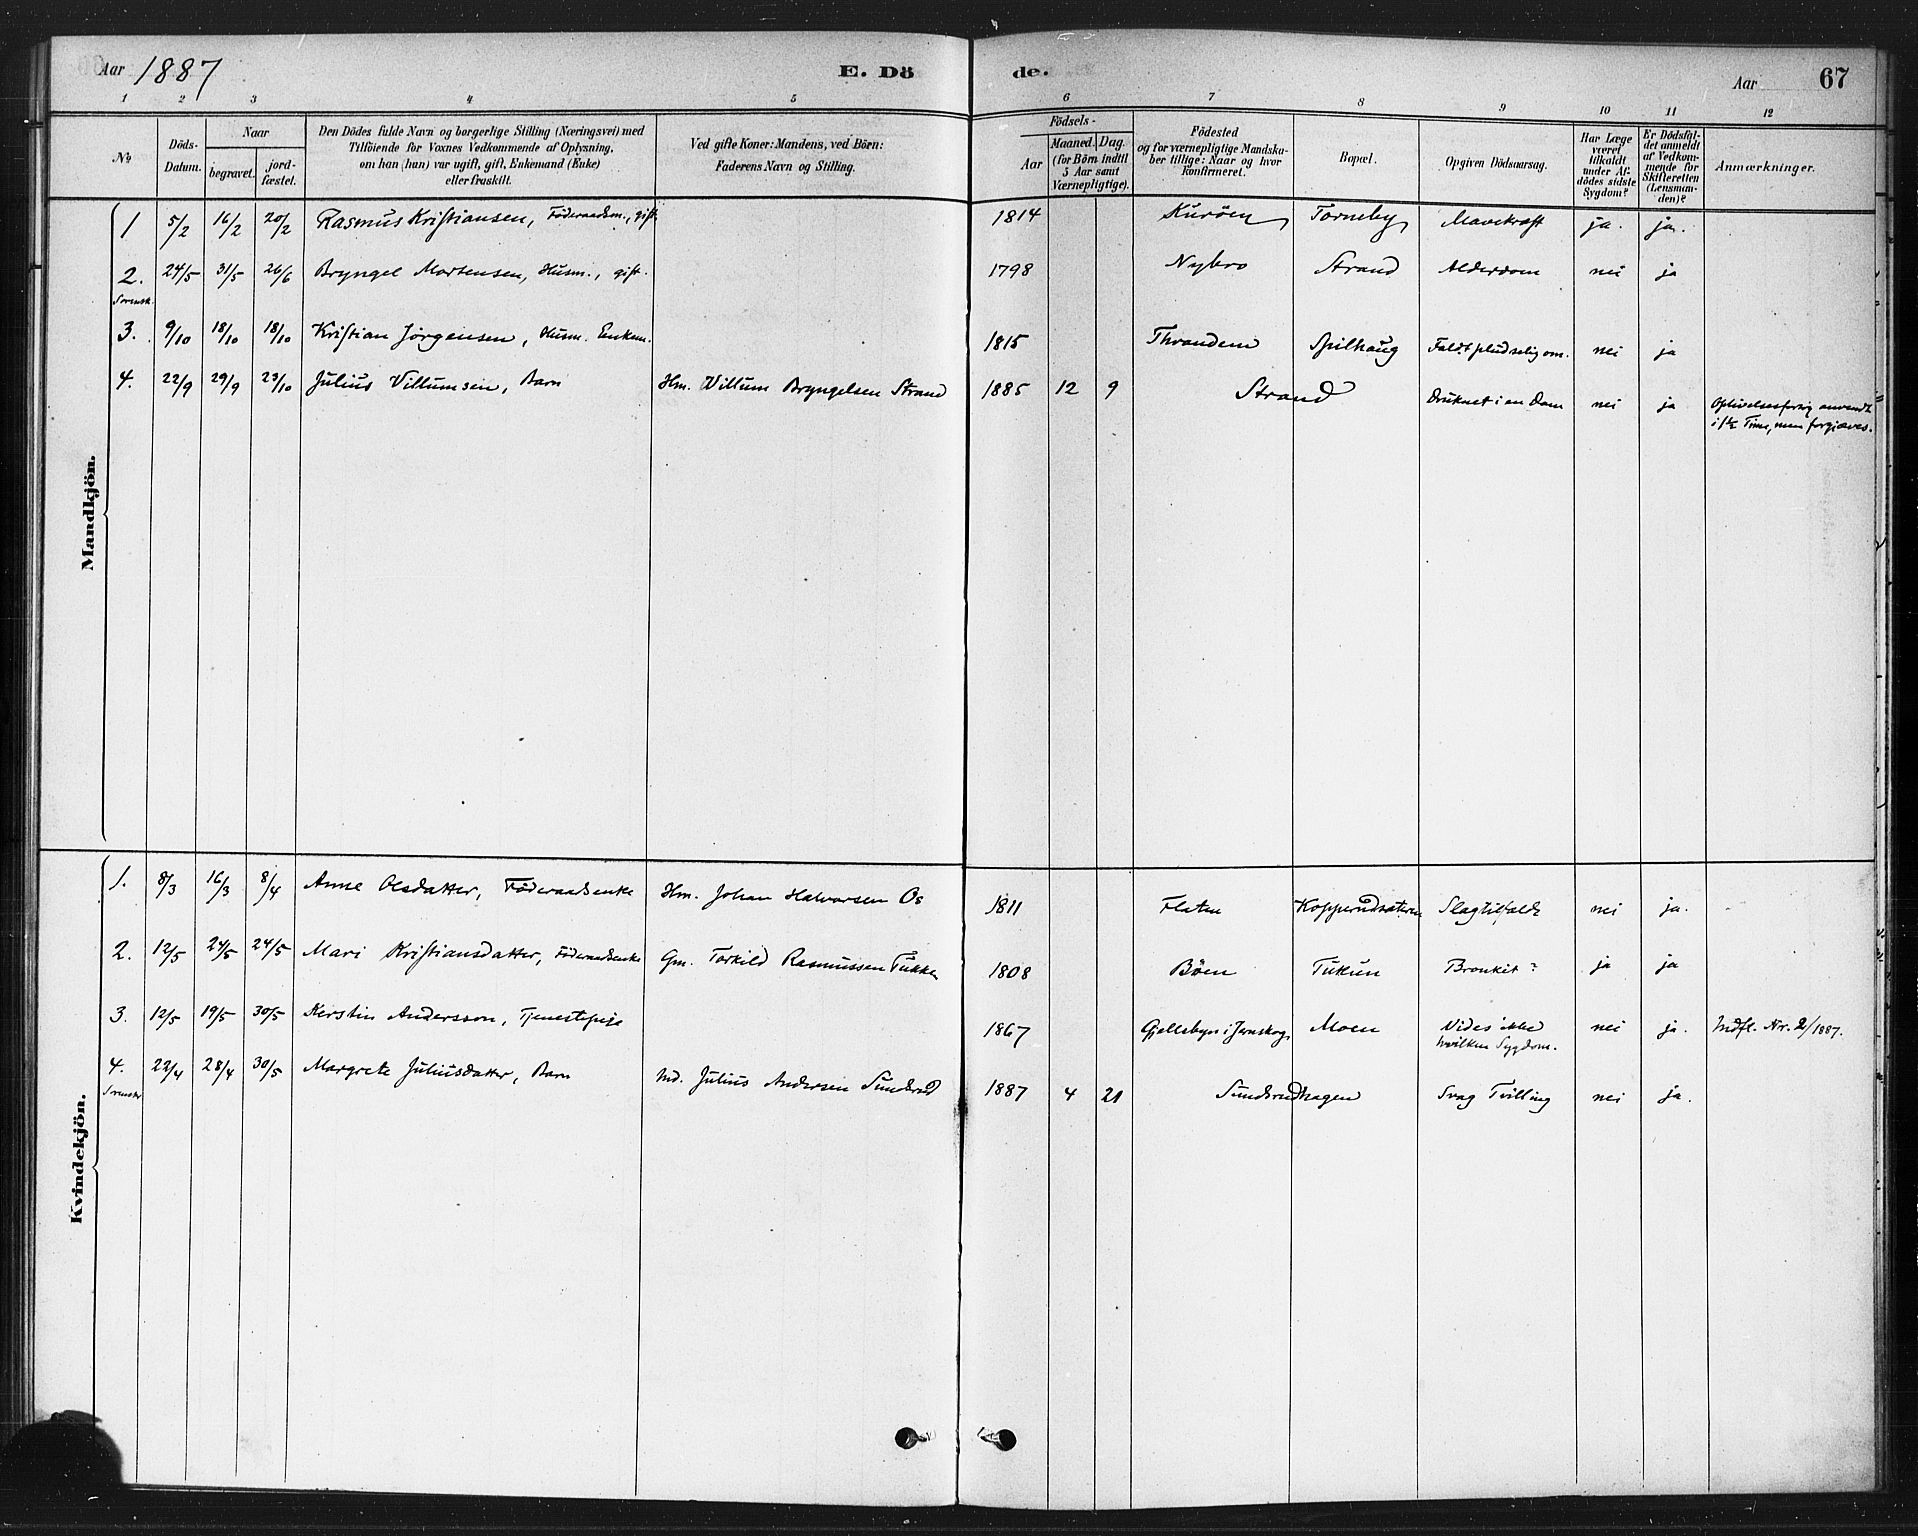 Aar 1887 E. Dö de. Aar 67
1 2 3 4 5 6 7 8 9 10 11 12
No Döds-Datum. Naar begravet. jordfæstet. Den Dödes fulde Navn og borgerlige Stilling (Næringsvei) med Tilföiende for Voxnes Vedkommende af Oplysning, om han (hun) var ugift, gift, Enkemand (Enke) eller fraskilt. Ved gifte Koner: Mandens, ved Börn: Faderens Navn og Stilling. Födsels- Aar Maaned. Dag. (for Börn indtil 5 Aar samt Værnepligtige). Födested og for værnepligtige Mandskaber tillige: Naar og hvor konfirmeret. Bopæl. Opgiven Dödsaarsag. Har Læge været tilkaldt under Afdödes sidste Sygdom? Er Dödsfaldet anmeldt af Vedkommende for Skifteretten (Lensmanden)? Anmærkninger.
Mandkjön.
1 5/2 16/2 20/2 Rasmus Kristiansen, Föderaadsm., gift 1814 Kuröen Torneby Mavekræft ja. ja.
2. 24/5 31/5 26/6 Bryngel Mortensen, Husm., gift. 1798 Nybro Strand Alderdom nei ja
Svensk.
3. 9/10 18/10 18/10 Kristian Jörgensen, Husm. Enkem. 1815 Throndem Spilhaug Faldt pludselig om. nei ja
4. 22/9 29/9 23/10 Julius Villumsen, Barn Hm. Villum Bryngelsen Strand 1885 12 9 Strand Druknet i en Dam nei ja Oplivelsesforsög anvendt
i 1½ Time, men forgjæves.
Kvindekjön.
1. 8/3 16/3 8/4 Anne Olsdatter, Föderaadsenke Hm. Johan Halvorsen Os 1811 Flaten Kopperudsæteren Slagtilfælde nei ja.
2. 12/5 24/5 24/5 Mari Kristiansdatter, Föderaadsenke Gm. Torkild Rasmussen Tukken 1808 Böen Tukun Bronkit? ja ja
3. 12/5 19/5 30/5 Kerstin Andersson, Tjenestepige 1867 Gjellebyn i Jernskog Moen Vides ikke
hvilken Sygdom. nei ja. Indfl. Nr. 2/1887.
4. 22/4 28/4 30/5 Margrete Juliusdatter, Barn Ind. Julius Andersen Sundsrud 1887 4 21 Sundsrudhagen Svag Tvilling nei ja.
Svensk